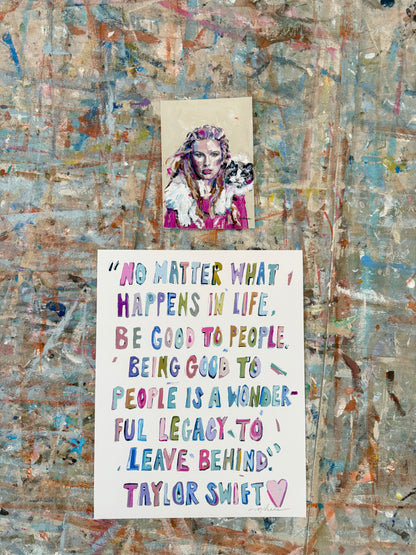 "NO MATTER WHAT
HAPPENS IN LIFE,
BE GOOD TO PEOPLE.
BEING GOOD TO
PEOPLE IS A WONDER-
FUL LEGACY TO
LEAVE BEHIND."
TAYLOR SWIFT